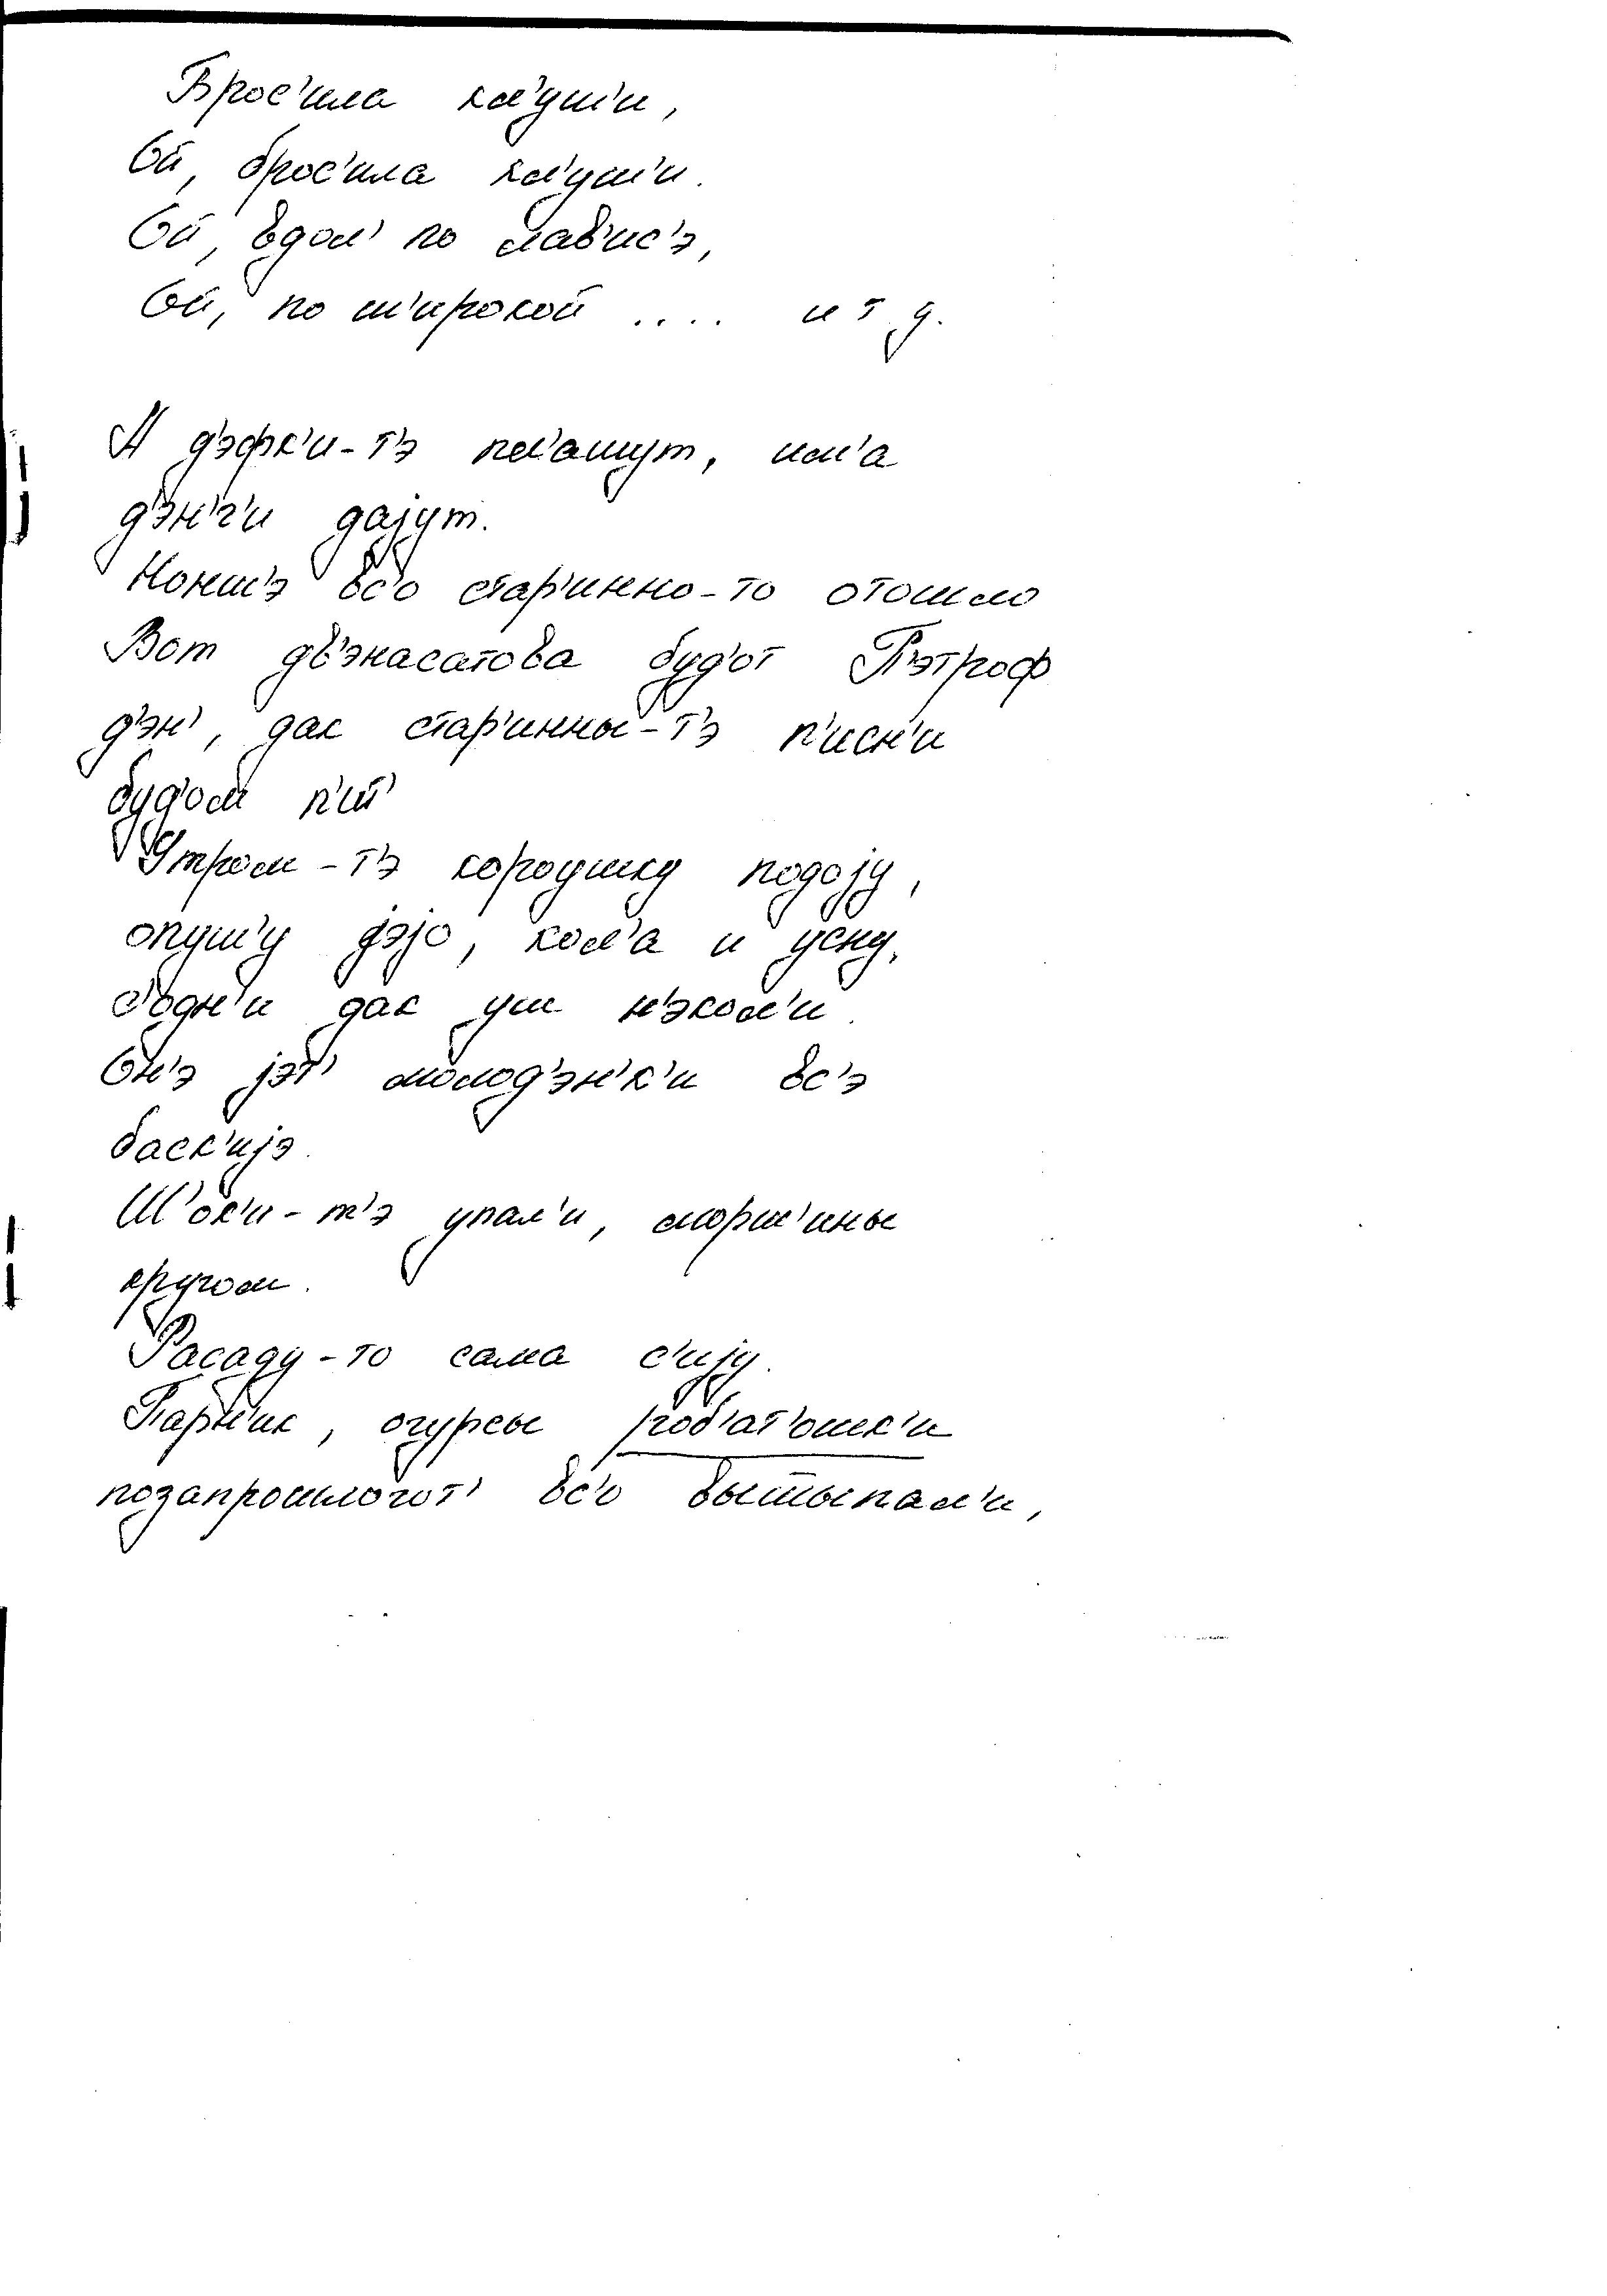 Брос'ила кл'уш'и,
Ой, брос'ила кл'уш'и.
Ой, вдол' по лав'ис'э,
Ой, по ш'ирокой .... и т.д.
А д'эфк'и-т'э пл'ашут, им'а
д'эн'г'и дајут.
Нонш'э вс'о стар'инно-то отошло
Вот дв'энасатова буд'от П'этроф
д'эн', дак стар'инны-т'э п'исн'и
буд'ом п'ит'
Утром-т'э короушку подоју,
опуш'у јэјо, кол'а и усну.
Родн'и дак уш н'экол'и.
Он'э јэт' молод'эн'к'и вс'э
баск'ијэ.
Ш'ок'и-т'э упал'и, морш'ины
кругом.
Расаду-то сама с'ију.
Парн'ик, огурсы роб'ат'ошк'и
позапрошлогот' вс'о вытыпал'и,